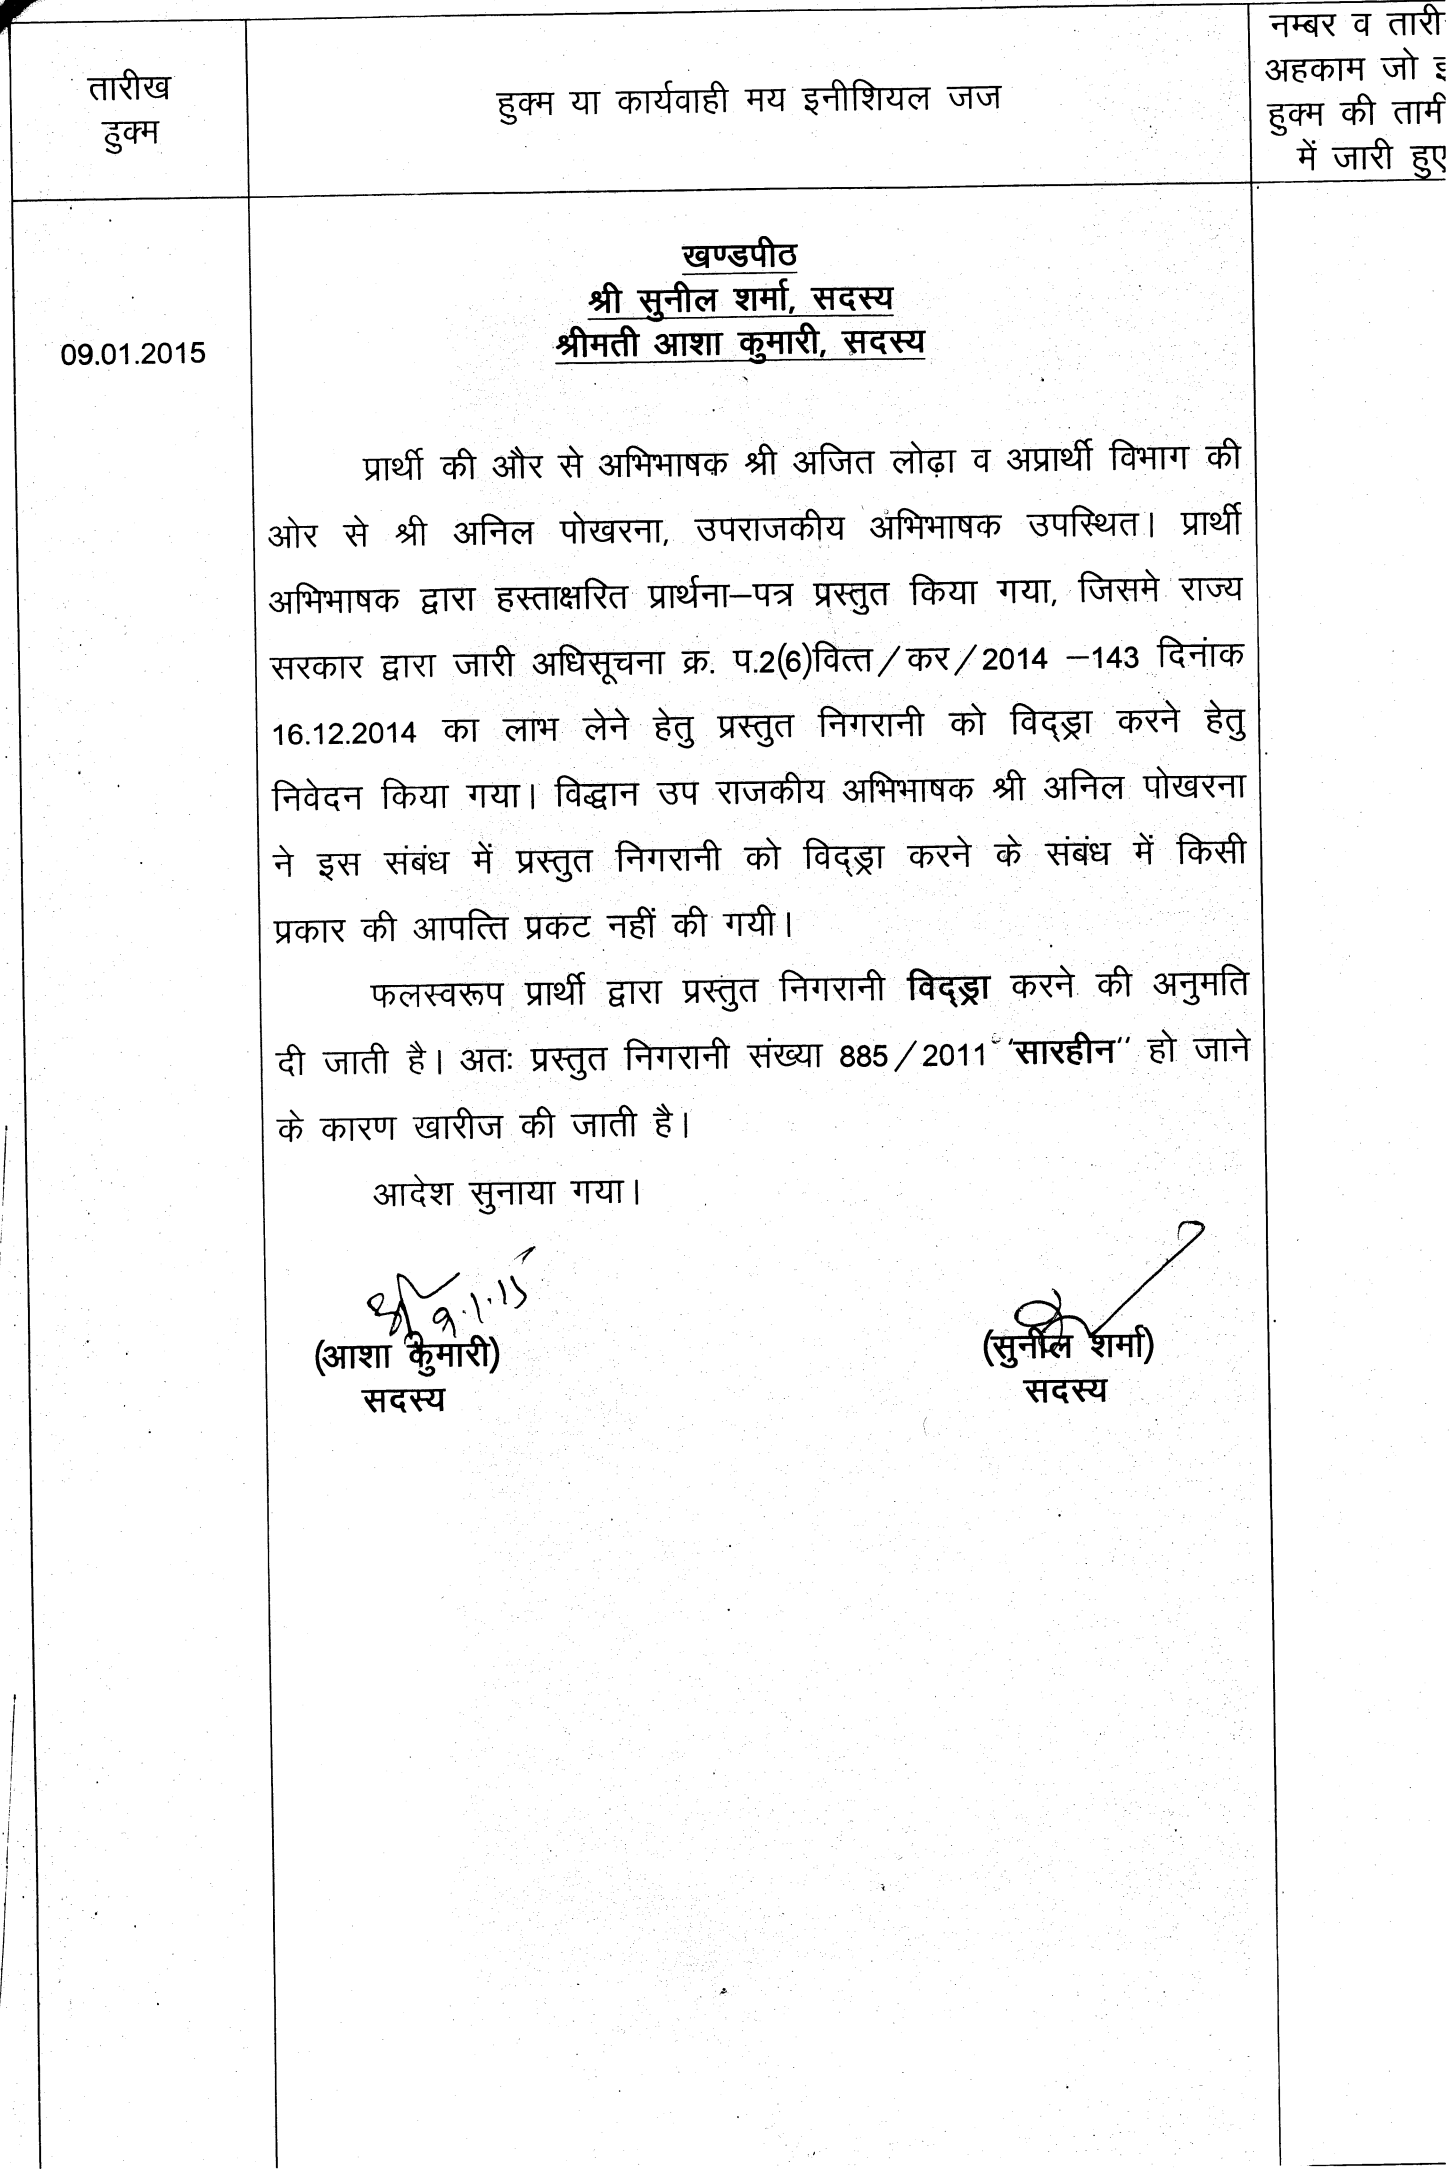 तारीख
हुक्म
हुक्म या कार्यवाही मय इनीशियल जज
नम्बर व तारी
अहकाम जो इ
हुक्म की तामी
में जारी हुए
खण्डपीठ
श्री सुनील शर्मा, सदस्य
श्रीमती आशा कुमारी, सदस्य
09.01.2015
प्रार्थी की और से अभिभाषक श्री अजित लोढ़ा व अप्रार्थी विभाग की
ओर से श्री अनिल पोखरना, उपराजकीय अभिभाषक उपस्थित। प्रार्थी
अभिभाषक द्वारा हस्ताक्षरित प्रार्थना–पत्र प्रस्तुत किया गया, जिसमे राज्य
सरकार द्वारा जारी अधिसूचना क्र. प.2(6)वित्त/कर/2014 –143 दिनांक
16.12.2014 का लाभ लेने हेतु प्रस्तुत निगरानी को विद्ड्रा करने हेतु
निवेदन किया गया। विद्धान उप राजकीय अभिभाषक श्री अनिल पोखरना
ने इस संबंध में प्रस्तुत निगरानी को विद्ड्रा करने के संबंध में किसी
प्रकार की आपत्ति प्रकट नहीं की गयी।
फलस्वरूप प्रार्थी द्वारा प्रस्तुत निगरानी विद्ड्रा करने की अनुमति
दी जाती है। अतः प्रस्तुत निगरानी संख्या 885/2011 ''सारहीन'' हो जाने
के कारण खारीज की जाती है।
आदेश सुनाया गया।
9.1.15
(आशा कुमारी)
सदस्य
(सुनील शर्मा)
सदस्य